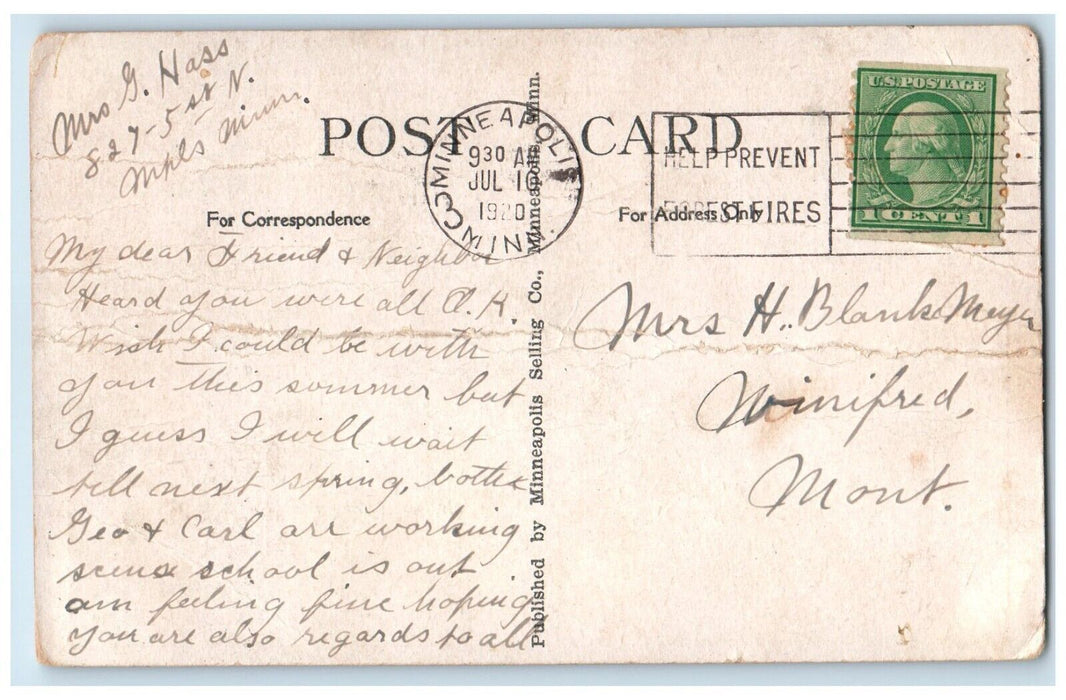 Mrs G. Hass
827-5 st N.
Mpls Minn.
POST CARD
MINNEAPOLIS
MINN
9 30 AM
JUL 16
1920
HELP PREVENT
FOREST FIRES
U.S. POSTAGE
1 CENT 1
For Correspondence
For Address Only
My dear Friend & Neighbor
Heard you were all O.K.
Wish I could be with
you this summer but
I guess I will wait
till next spring, bothe
Geo & Carl are working
scince school is out
am feeling fine hoping
you are also regards to all
Published by Minneapolis Selling Co., Minneapolis, Minn.
Mrs H. Blank Meyer
Winifred,
Mont.